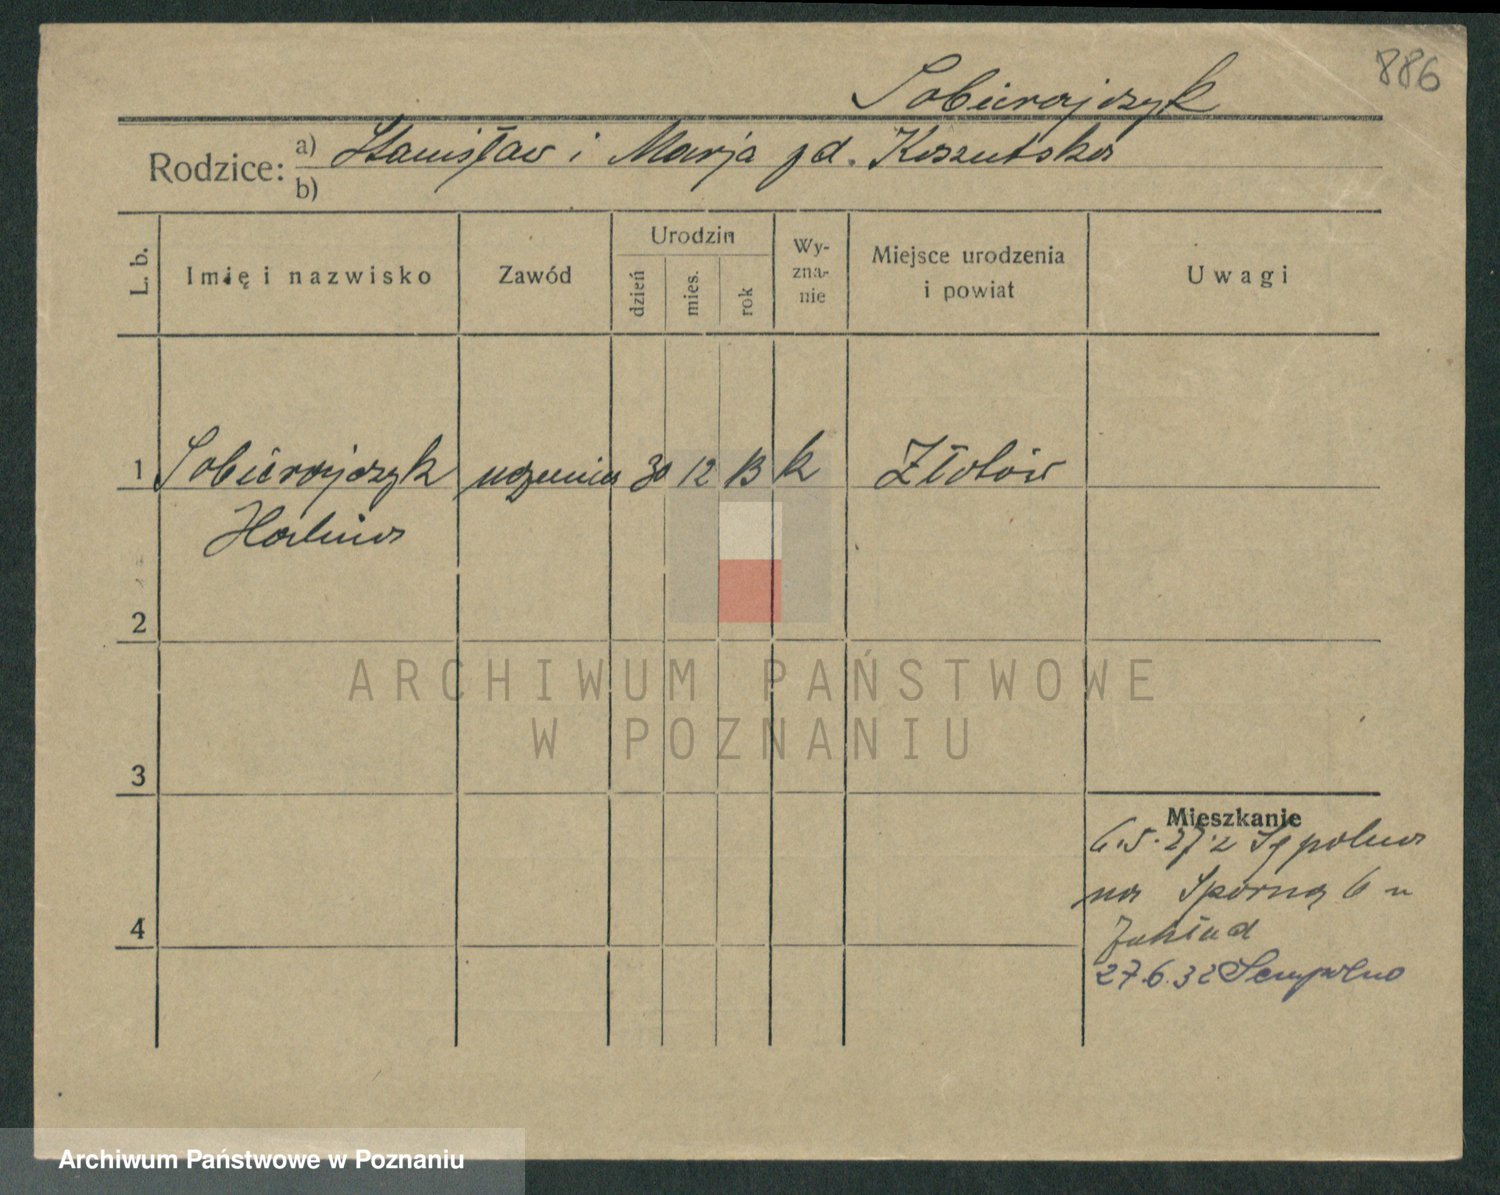 886
Sobierajczyk
Rodzice: a) Stanisław i Marja zd. Koszutska
b)
L. b. Imię i nazwisko Zawód Urodzin dzień mies. rok Wy-zna-nie Miejsce urodzenia i powiat Uwagi
1 Sobierajczyk uczenica 30 12 13 k Złotów
Halina
2
ARCHIWUM PAŃSTWOWE
W POZNANIU
3
Mieszkanie
6.5.27 z Sępolna
na Sporną 6
4
27.6.32 Sempolno
Archiwum Państwowe w Poznaniu